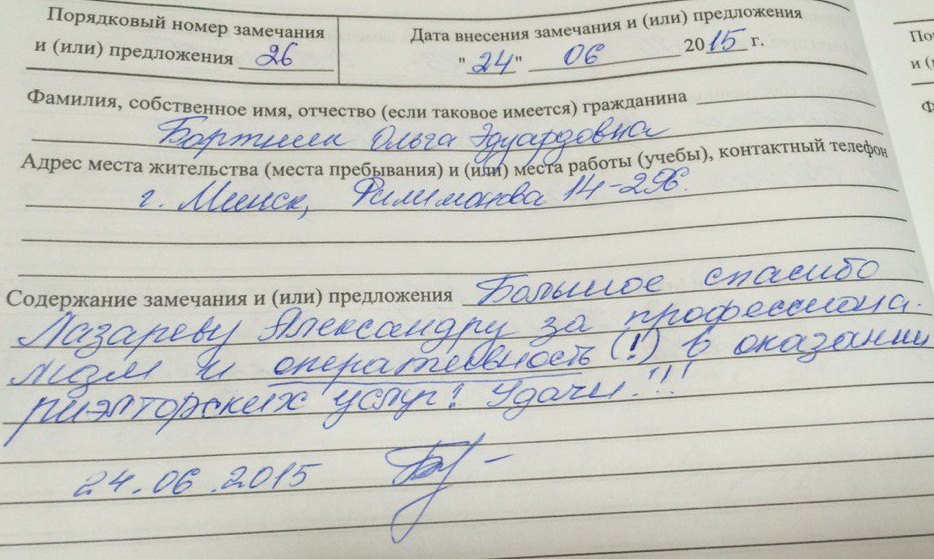 Порядковый номер замечания
и (или) предложения 26
Дата внесения замечания и (или) предложения
"24" 06 2015 г.
Фамилия, собственное имя, отчество (если таковое имеется) гражданина
Ольга Эдуардовна
Адрес места жительства (места пребывания) и (или) места работы (учебы), контактный телефон
г. Минск, Филимонова 14-296.
Содержание замечания и (или) предложения Большое спасибо
Лазареву Александру за профессиона-
лизм и оперативность (!) в оказании
риэлторских услуг! Удачи!!!
24.06.2015